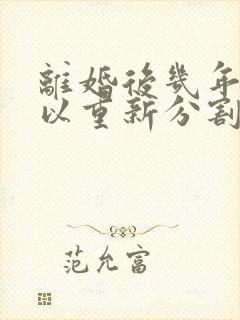 離婚後幾年
以重新分割
范允富